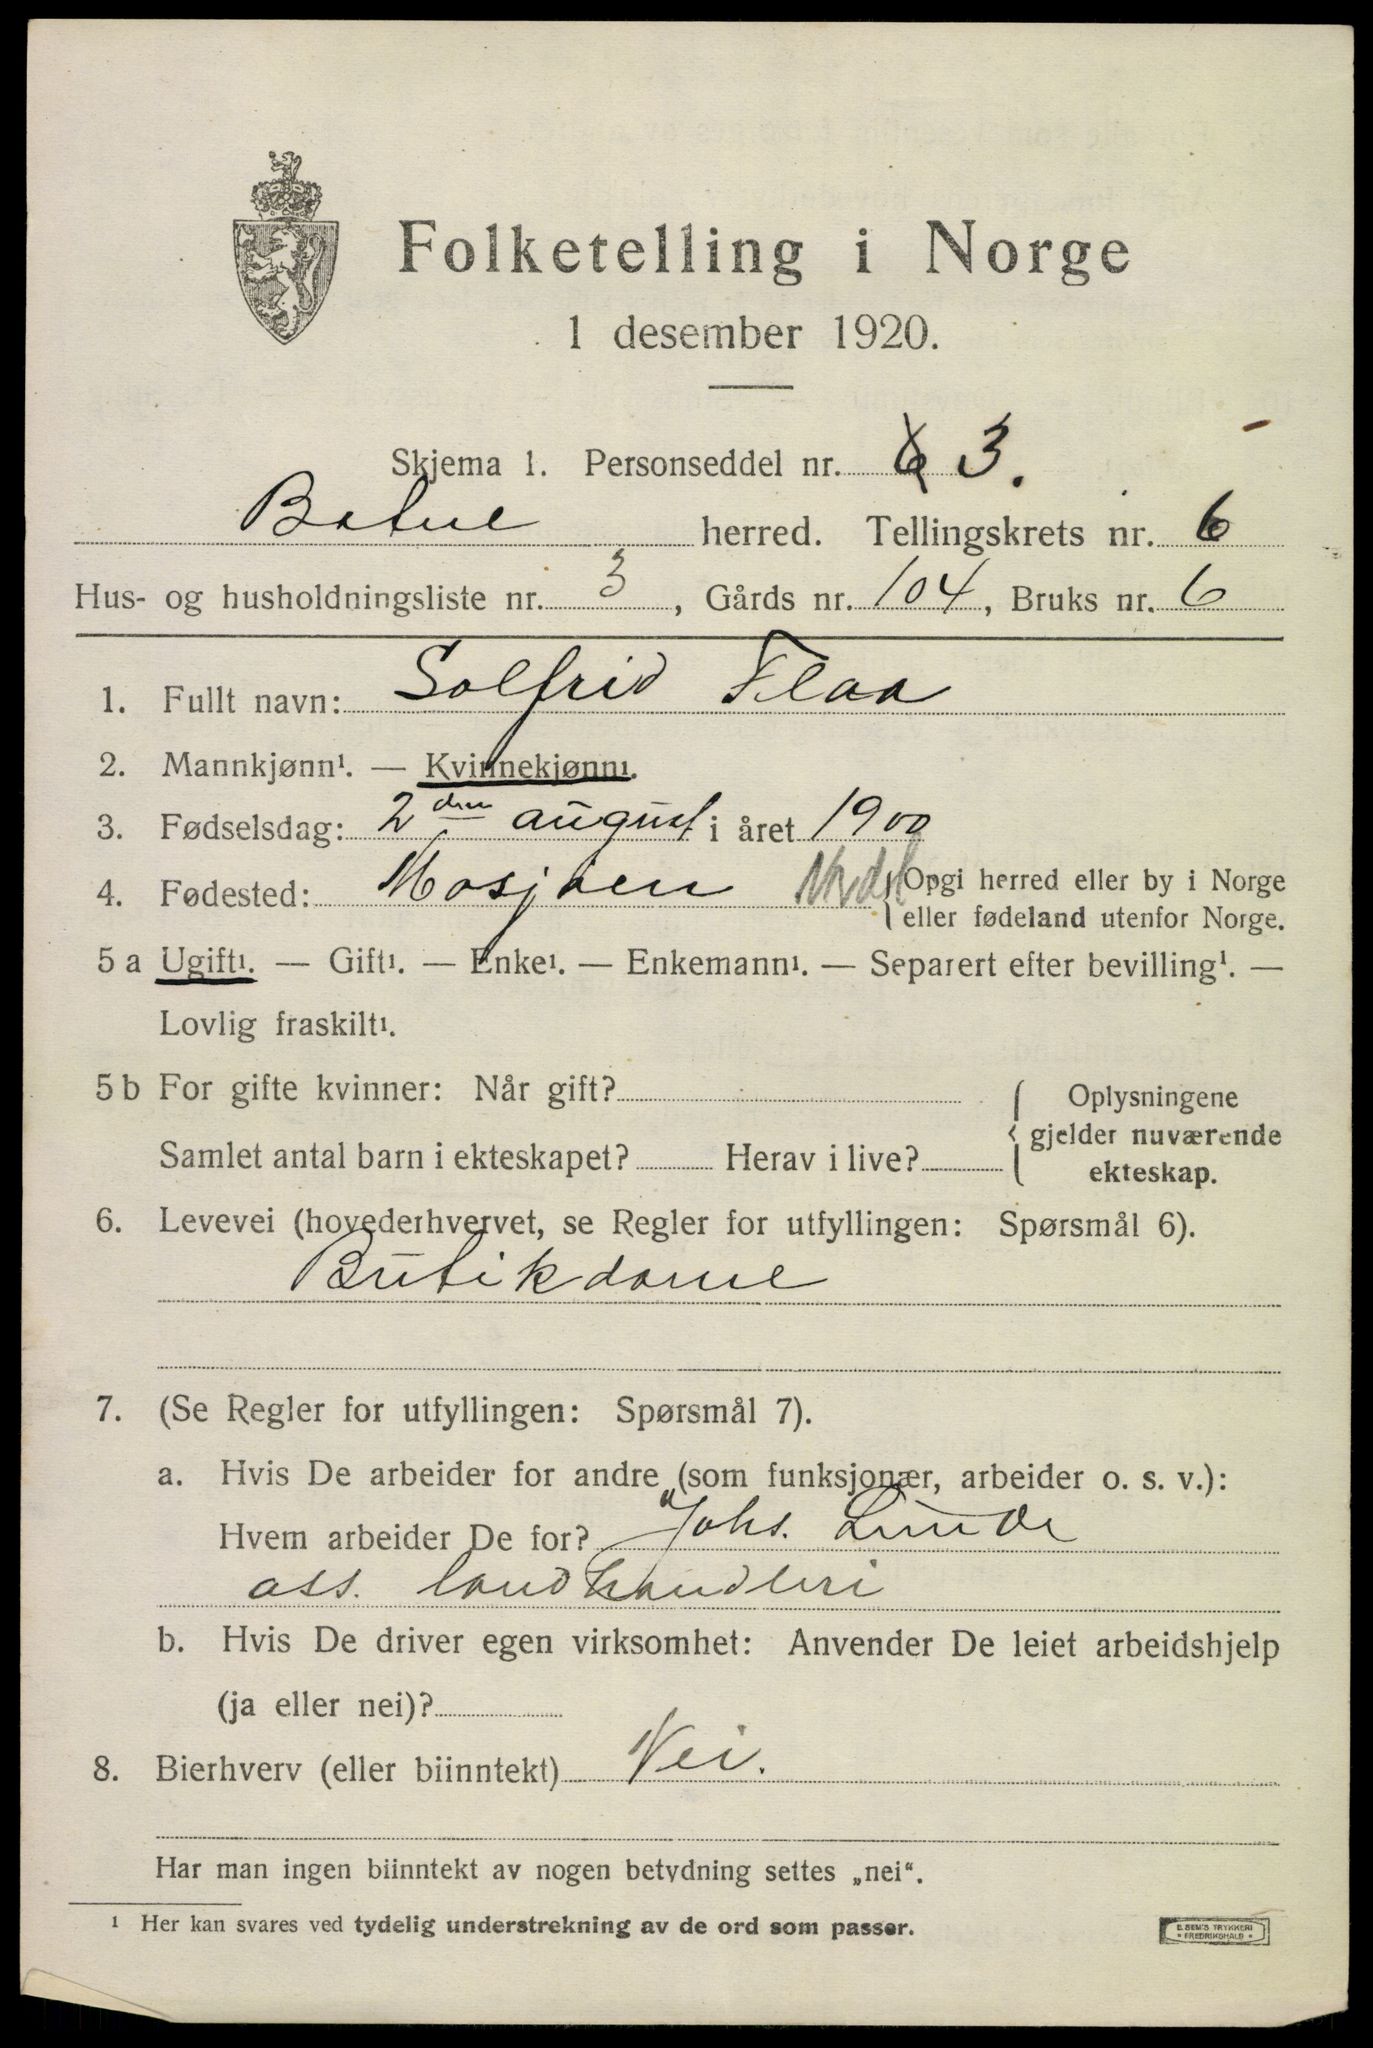 Folketelling i Norge
1 desember 1920.
Skjema 1. Personseddel nr. 6 3.
Botne herred. Tellingskrets nr. 6
Hus- og husholdningsliste nr. 3, Gårds nr. 104, Bruks nr. 6
1. Fullt navn: Solfrid Flaa
2. Mannkjønn¹. — Kvinnekjønn¹.
3. Fødselsdag: 2den august i året 1900
4. Fødested: Mosjøen Nrdl {Opgi herred eller by i Norge
eller fødeland utenfor Norge.
5 a Ugift¹. — Gift¹. — Enke¹. — Enkemann¹. — Separert efter bevilling¹. —
Lovlig fraskilt¹.
5 b For gifte kvinner: Når gift?
Samlet antal barn i ekteskapet? Herav i live?
{Oplysningene
gjelder nuværende
ekteskap.
6. Levevei (hovederhvervet, se Regler for utfyllingen: Spørsmål 6).
Butikdame
7. (Se Regler for utfyllingen: Spørsmål 7).
a. Hvis De arbeider for andre (som funksjonær, arbeider o. s. v.):
Hvem arbeider De for? Johs. Lunde
ass. landhandleri
b. Hvis De driver egen virksomhet: Anvender De leiet arbeidshjelp
(ja eller nei)?
8. Bierhverv (eller biinntekt) Nei.
Har man ingen biinntekt av nogen betydning settes „nei“.
¹ Her kan svares ved tydelig understrekning av de ord som passer.
E. SEM'S TRYKKERI
* FREDRIKSHALD *